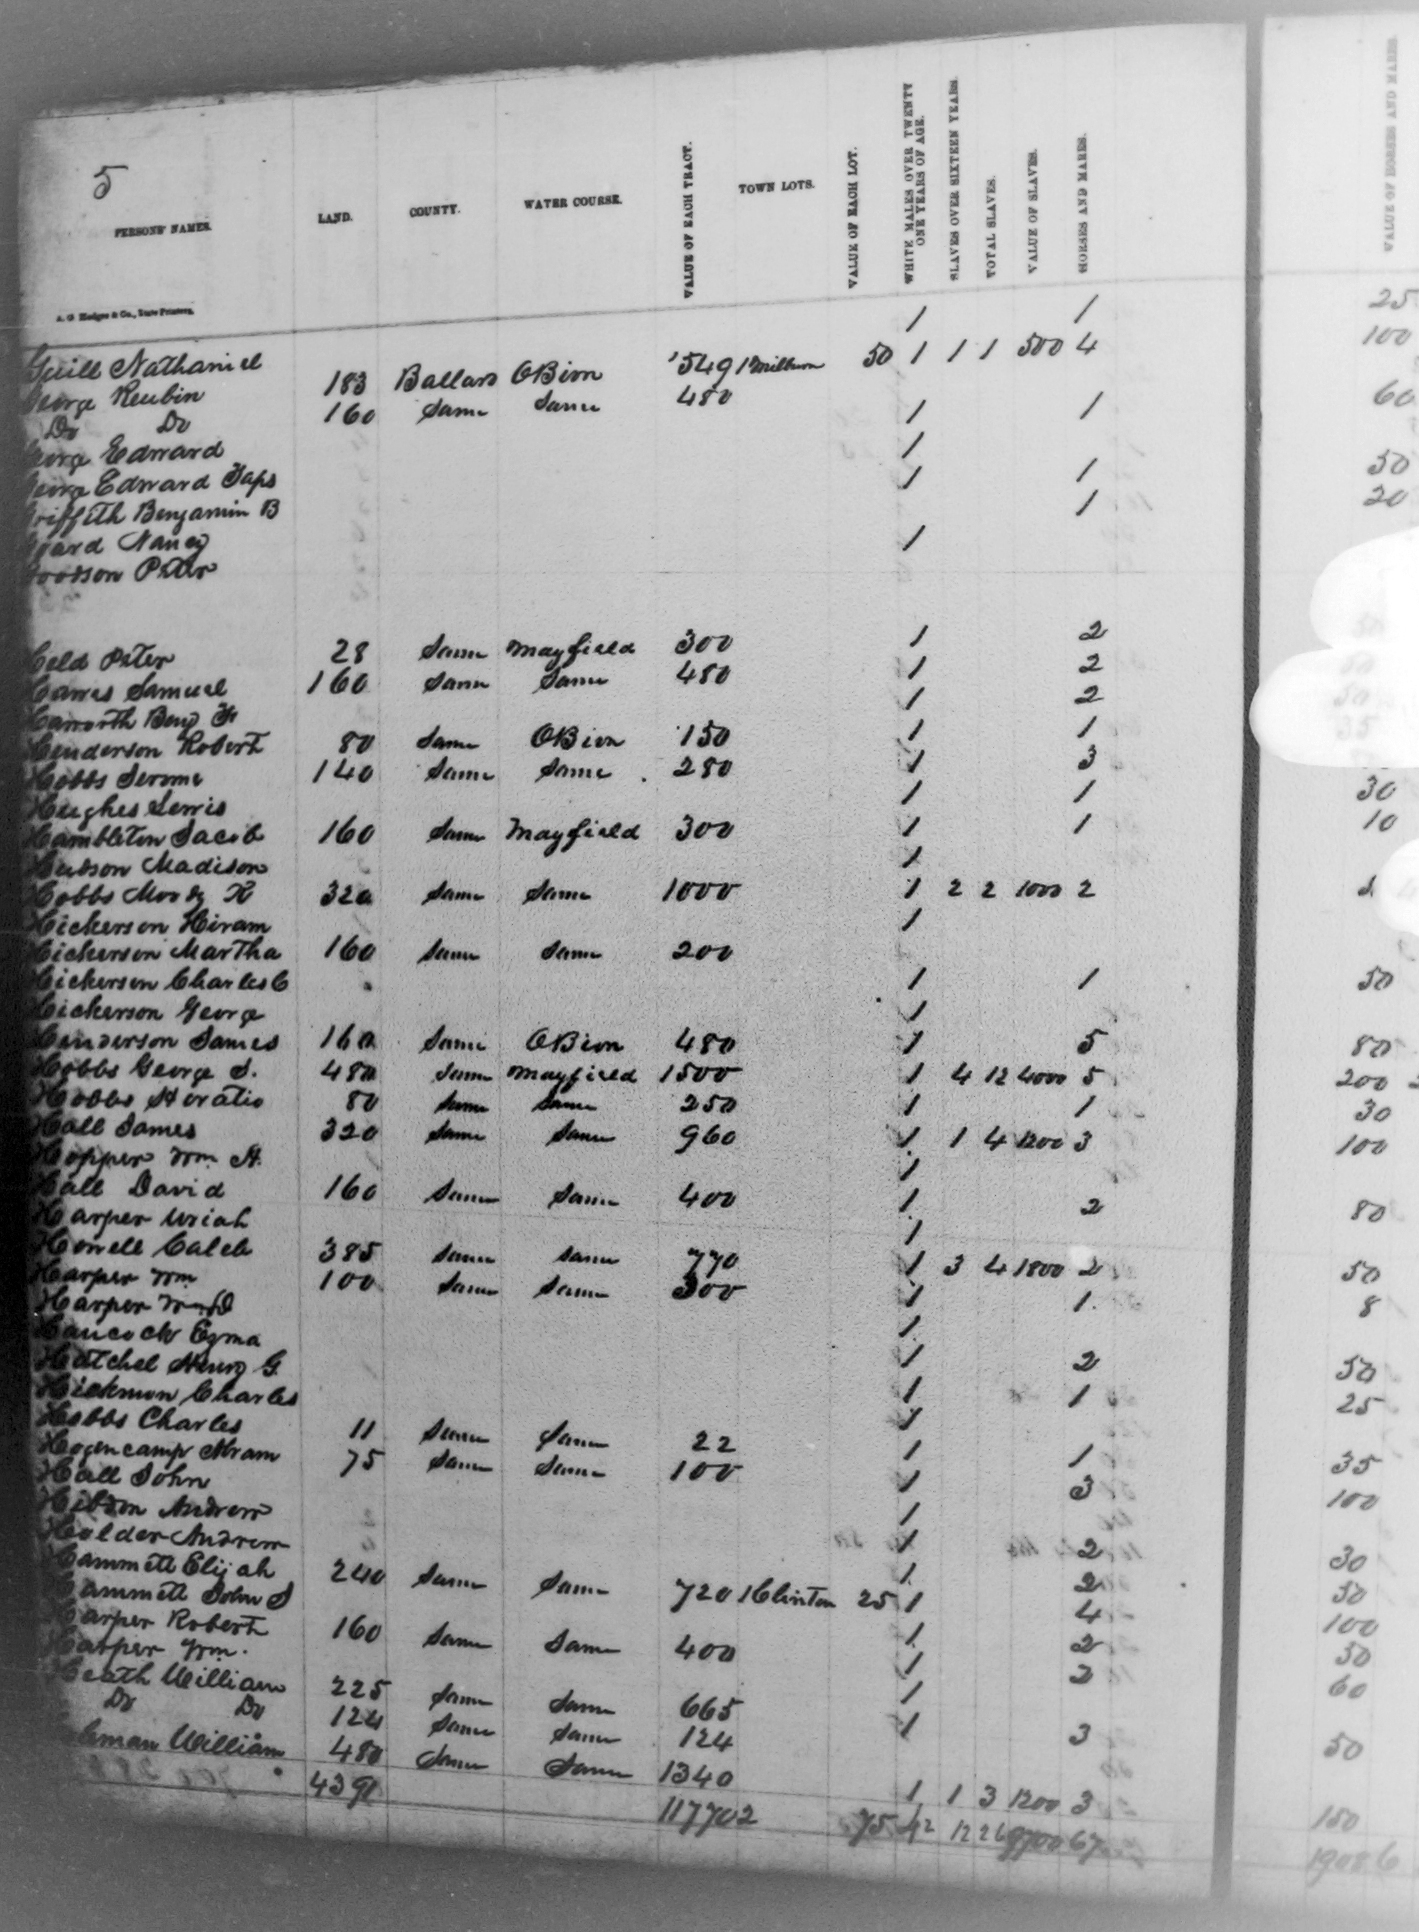 5
PERSONS' NAMES. LAND. COUNTY. WATER COURSE. VALUE OF EACH TRACT. TOWN LOTS. VALUE OF EACH LOT. WHITE MALES OVER TWENTY ONE YEARS OF AGE. SLAVES OVER SIXTEEN YEARS. TOTAL SLAVES. VALUE OF SLAVES. HORSES AND MARES. VALUE OF HORSES AND MARES.
A. G. Hodges & Co., State Printers.
Guill Nathaniel 1 1 25
George Reubin 183 Ballard OBion 549 1 Milburn 50 1 1 1 500 4 100
Do Do 160 Same Same 480
George Edward 1 1 60
George Edward Taps 1
Griffith Benjamin B 1 1 50
Nancy 1 20
Peter 1
Held Peter 28 Same Mayfield 300 1 2
Hawes Samuel 160 Same Same 480 1 2
Haworth Benj 1 2
Henderson Robert 80 Same OBion 150 1 1
Hobbs Jerome 140 Same Same 280 1 3
Hughes Lewis 1 1 30
Hambleton Jacob 160 Same Mayfield 300 1 1 10
Hudson Madison 1
Hobbs Moody R 320 Same Same 1000 1 2 2 1000 2
Hickerson Hiram 1
Hickerson Martha 160 Same Same 200
Hickerson Charles C 1 1 50
Hickerson George 1
Henderson James 160 Same OBion 480 1 5 80
Hobbs George S. 480 Same Mayfield 1500 1 4 12 4000 5 200
Hobbs Horatio 80 Same Same 250 1 1 30
Hall James 320 Same Same 960 1 1 4 1200 3 100
Hopper Wm H. 1
Hall David 160 Same Same 400 1 2 80
Harper Uriah 1
Howell Caleb 385 Same Same 770 1 3 4 1800 2 50
Harper Wm 100 Same Same 300 1 1 8
Harper Wm D 1
Hancock 1 2 50
Hatchel Henry G. 1 1 25
Hickmon Charles 1
Hobbs Charles 11 Same Same 22 1 1 35
Hogencamp Abram 75 Same Same 100 1 3 100
Hall John 1
Andrew 1 2 30
Holder Andrew 1 2 50
Hammett Elijah 240 Same Same 720 1 Clinton 25 1 4 100
Hammett John S 1 2 50
Harper Robert 160 Same Same 400 1 2 60
Harper Wm. 1
Heath William 225 Same Same 665 1 3 50
Do Do 124 Same Same 124
William 480 Same Same 1340 1 1 3 1200 3 150
4391 117702 75 42 12 26 9700 67